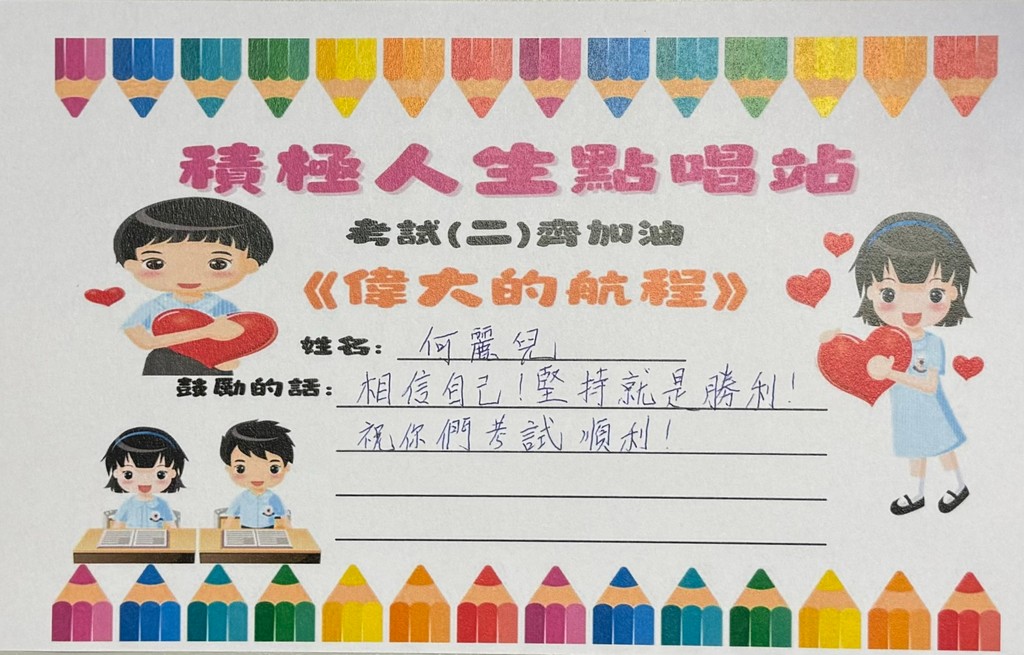 積極人生點唱站
考試(二)齊加油
《偉大的航程》
姓名：何麗兒
鼓勵的話：相信自己！堅持就是勝利！
祝你們考試順利！